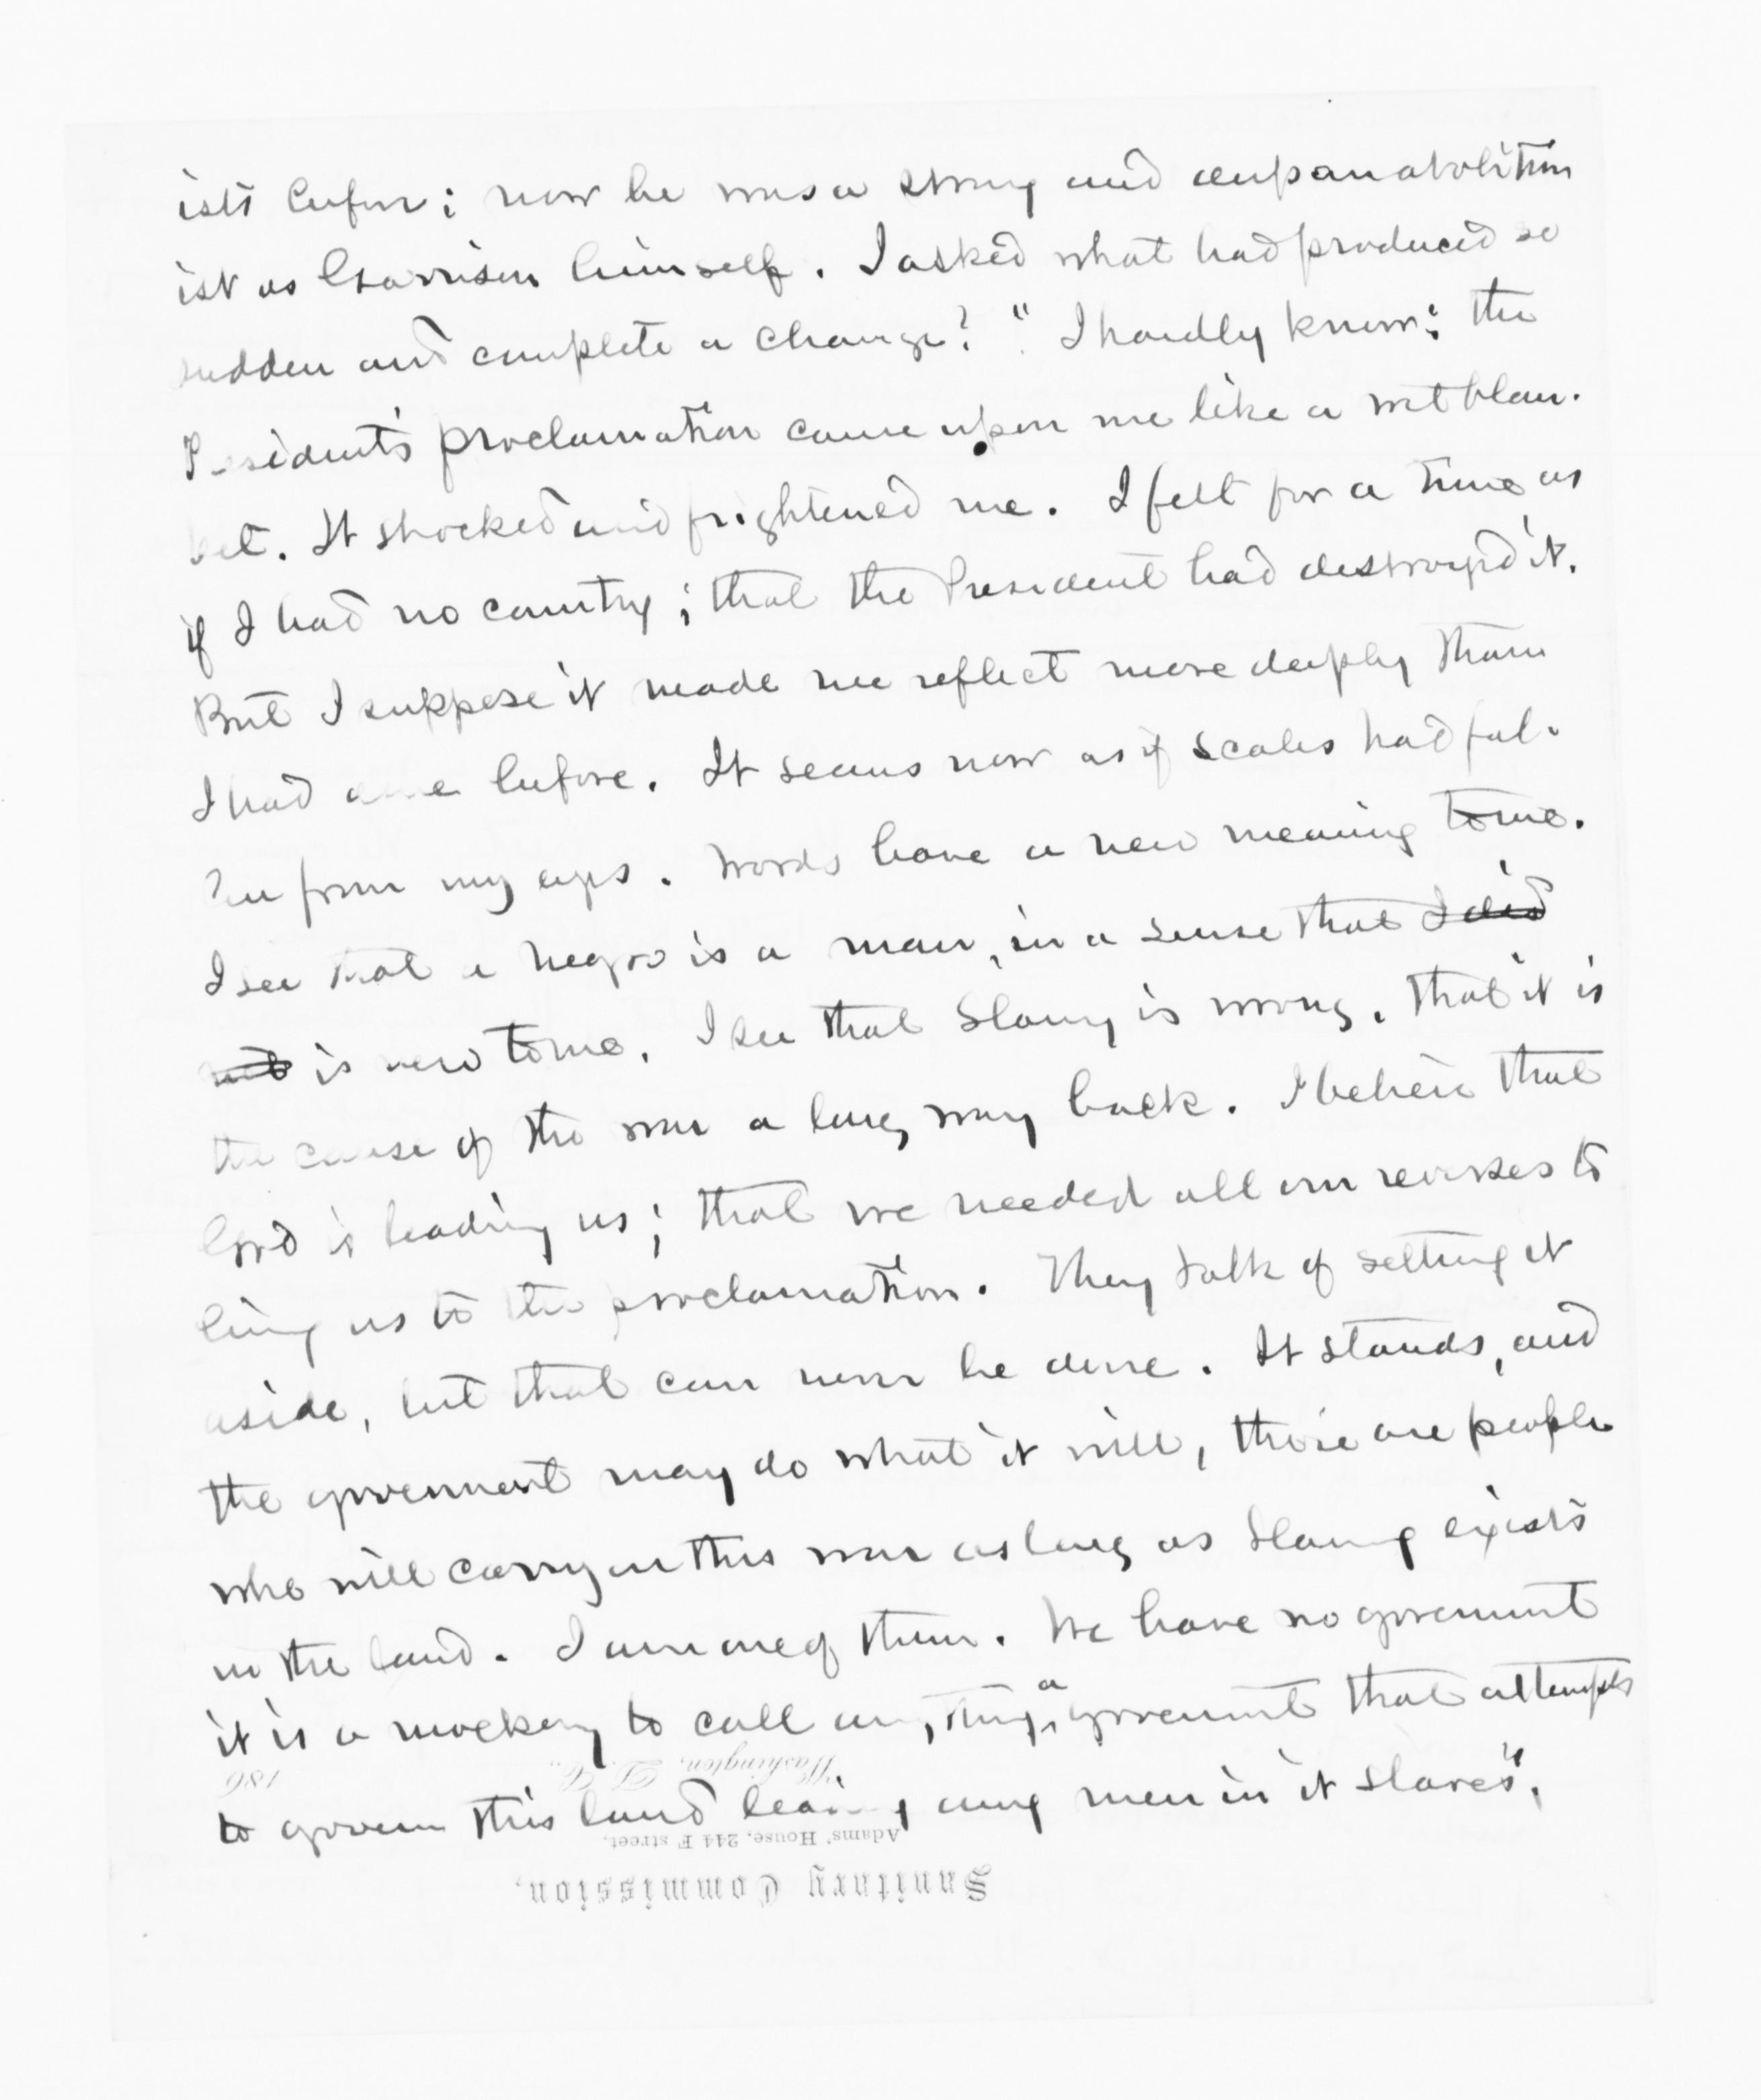 ists before; now he was a strong and deep an abolition
ist as Garrison himself. I asked what had produced so
sudden and complete a change? "I hardly know: the
President's proclamation came upon me like a wet blan-
ket. It shocked and frightened me. I felt for a time as
if I had no country; that the President had destroyed it.
But I suppose it made me reflect more deeply than
I had done before. It seems now as if scales had fal-
len from my eyes. Words have a new meaning to me.
I see that a negro is a man, in a sense that I did
not is new to me. I see that Slavery is wrong, that it is
the cause of the war a long way back. I believe that
God is leading us; that we needed all our reverses to
bring us to the proclamation. They talk of setting it
aside, but that can never be done. It stands, and
the government may do what it will, there are people
who will carry on this war as long as Slavery exists
in the land. I am one of them. We have no government
it is a mockery to call any thing a government that attempts
to govern this land leaving any men in it slaves".
Washington, D. C., 186
Adams' House, 244 F street.
Sanitary Commission,